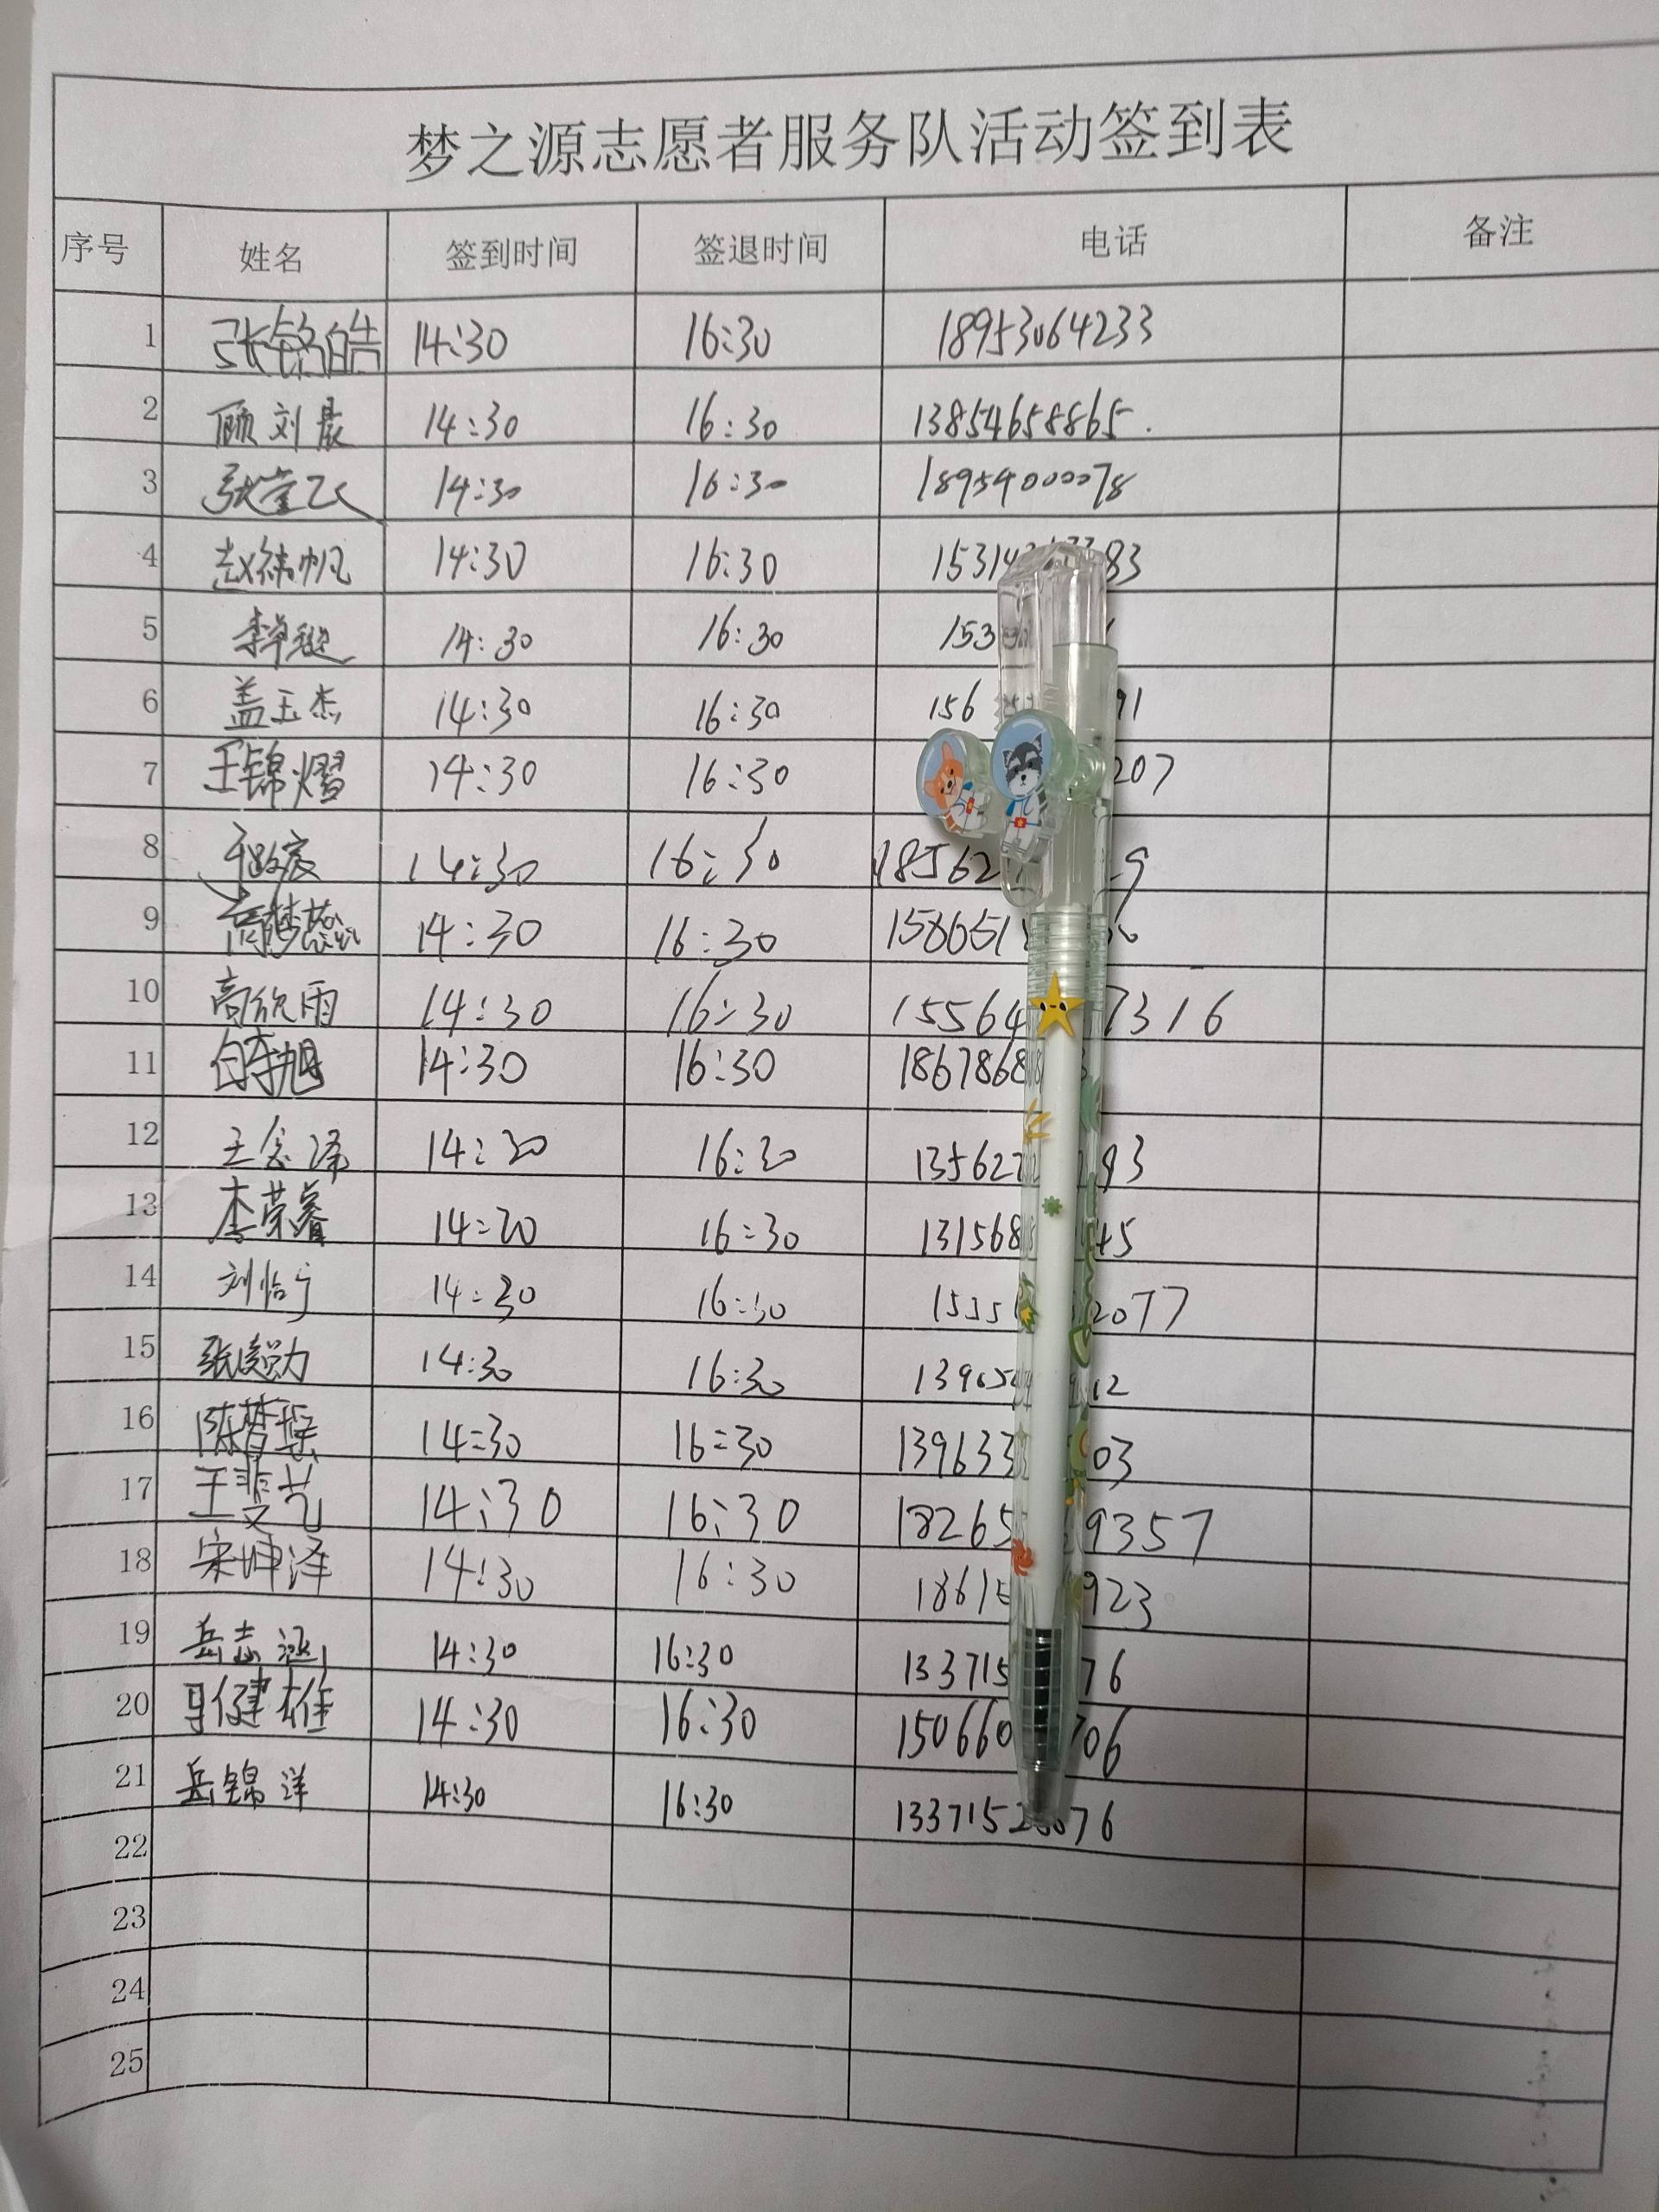 梦之源志愿者服务队活动签到表
序号 姓名 签到时间 签退时间 电话 备注
1 张铭皓 14:30 16:30 18953064233
2 顾刘晨 14:30 16:30 13854658865.
3 14:30 16:30 18954000078
4 赵 帆 14:30 16:30 15314 83
5 李 14:30 16:30 153
6 盖玉杰 14:30 16:30 156 91
7 王锦熠 14:30 16:30 207
8 14:30 16:30 18562 9
9 高梦蕊 14:30 16:30 158651
10 高欣雨 14:30 16:30 15564 7316
11 14:30 16:30 1867868
12 王 泽 14:30 16:30 135622 93
13 李荣睿 14:20 16:30 131568 45
14 刘怡宁 14:30 16:30 1535 2077
15 张 14:30 16:30 139054 12
16 陈梦瑶 14:30 16:30 139633 03
17 王斐艺 14:30 16:30 18265 9357
18 宋坤泽 14:30 16:30 18615 923
19 岳志涵 14:30 16:30 133715 76
20 马健雄 14:30 16:30 150660 706
21 岳锦洋 14:30 16:30 1337152 76
22
23
24
25